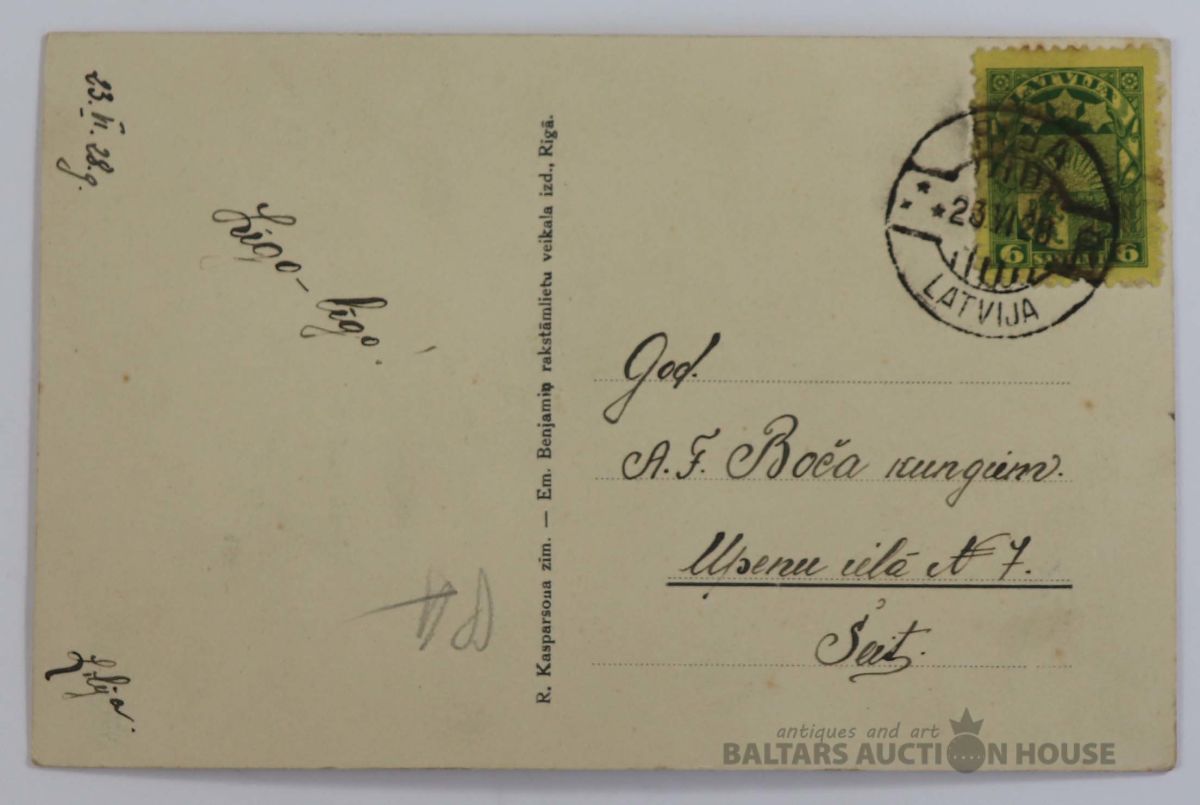 23.VI.28.g.
Līgo – līgo.
Lilija.
R. Kasparsona zim. — Em. Benjamiņ rakstāmlietu veikala izd., Rīgā.
LATVIJA
6 SANTIMI 6
23 VI 28
LATVIJA
God.
A. F. Boča kungam.
Upeņu ielā N 7.
Šeit.
antiques and art
BALTARS AUCTION HOUSE